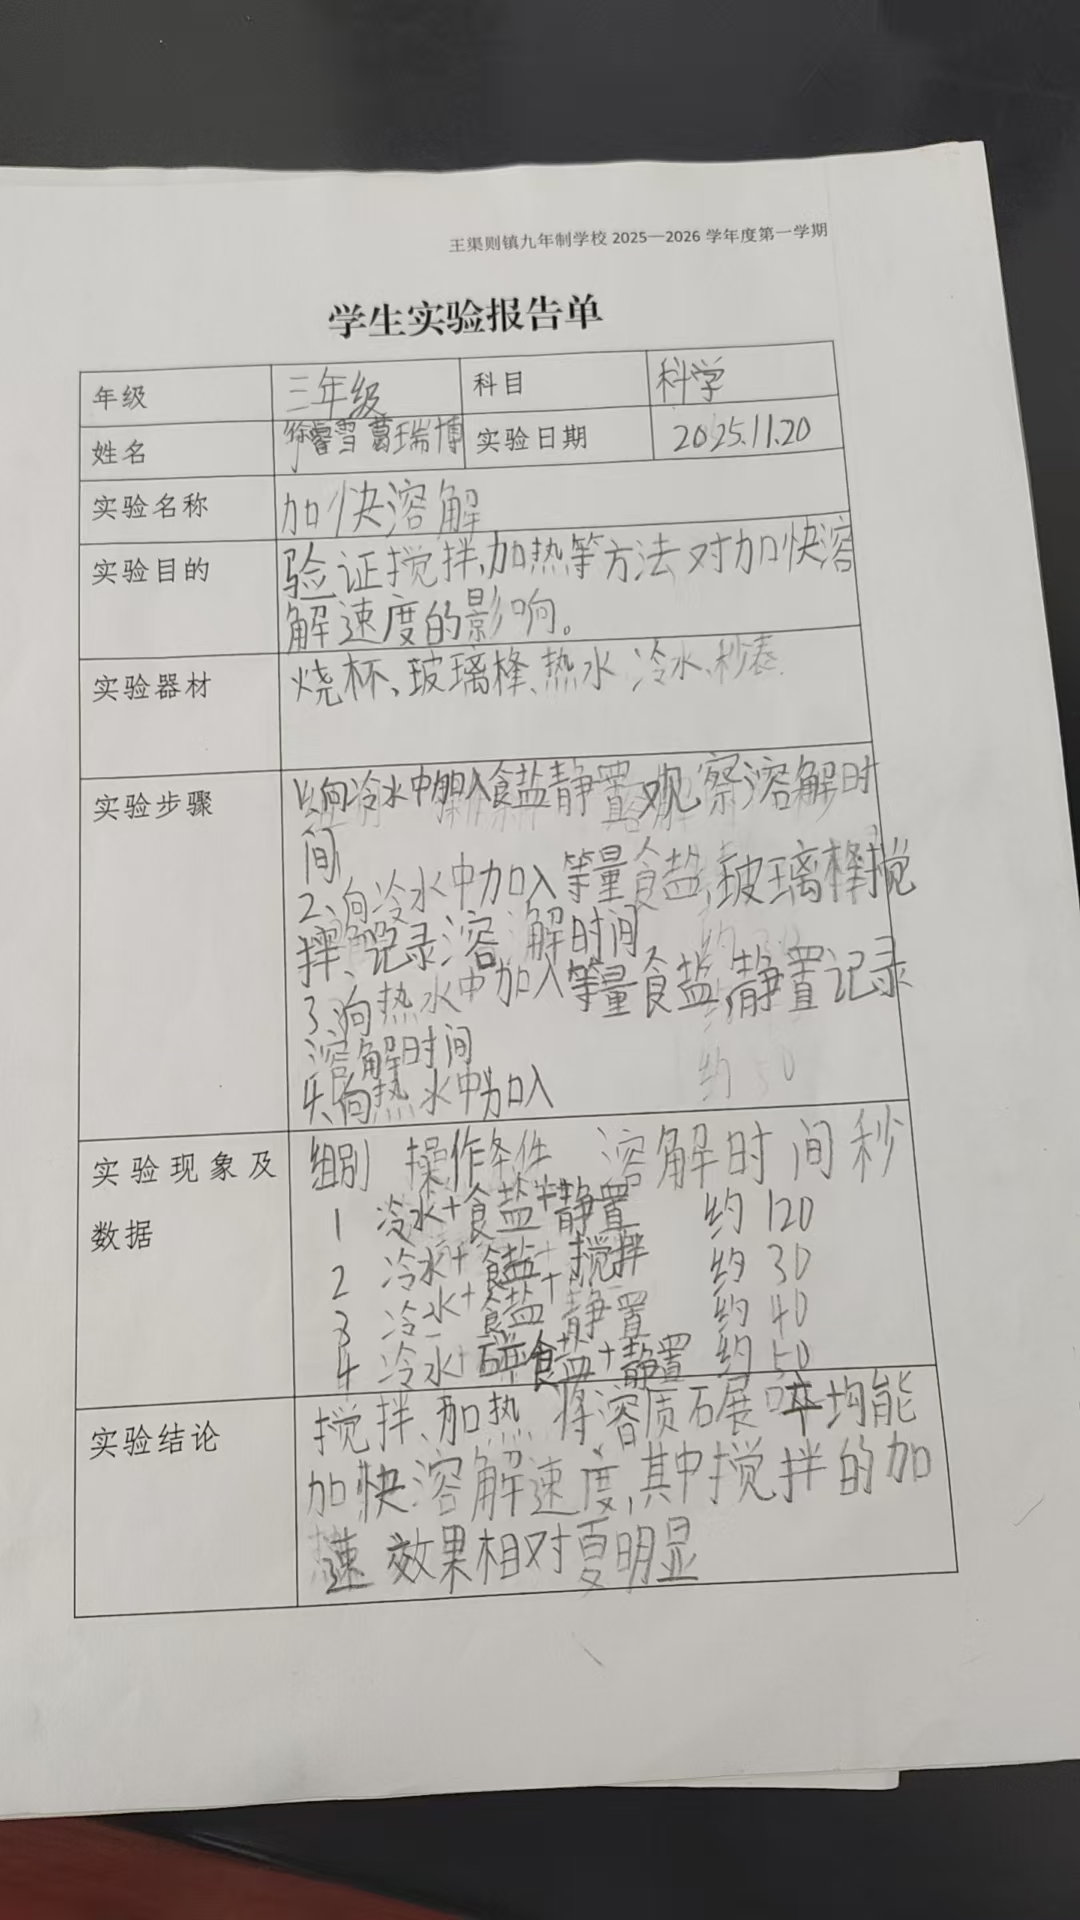 王渠则镇九年制学校 2025—2026 学年度第一学期
学生实验报告单
年级 三年级 科目 科学
姓名 徐睿雪 葛瑞博 实验日期 2025.11.20
实验名称 加快溶解
实验目的 验证搅拌、加热等方法对加快溶
解速度的影响。
实验器材 烧杯、玻璃棒、热水 冷水、秒表.
实验步骤 1、向冷水中加入食盐静置观察溶解时
间
2、向冷水中加入等量食盐,玻璃棒搅
拌、记录溶解时间
3、向热水中加入等量食盐,静置记录
溶解时间
4、向热水中加入
实验现象及 组别 操作条件 溶解时间秒
数据 1 冷水+食盐+静置 约120
2 冷水+食盐+搅拌 约30
3 冷水+食盐+静置 约40
4 冷水+碎食盐+静置 约50
实验结论 搅拌、加热 将溶质 碎均能
加快溶解速度,其中搅拌的加
速 效果相对更明显